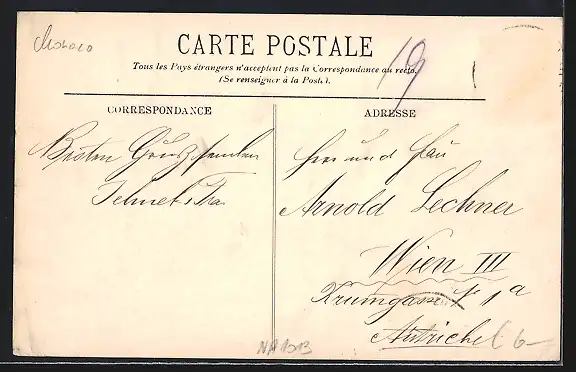 Monaco
CARTE POSTALE
19
Tous les Pays étrangers n'acceptent pas la Correspondance au recto.
(Se renseigner à la Poste).
CORRESPONDANCE
Besten Gruss senden
ADRESSE
Herr und Frau
Arnold Lechner
Wien III
Krumgasse № 1a
Autriche
6-
NA1313